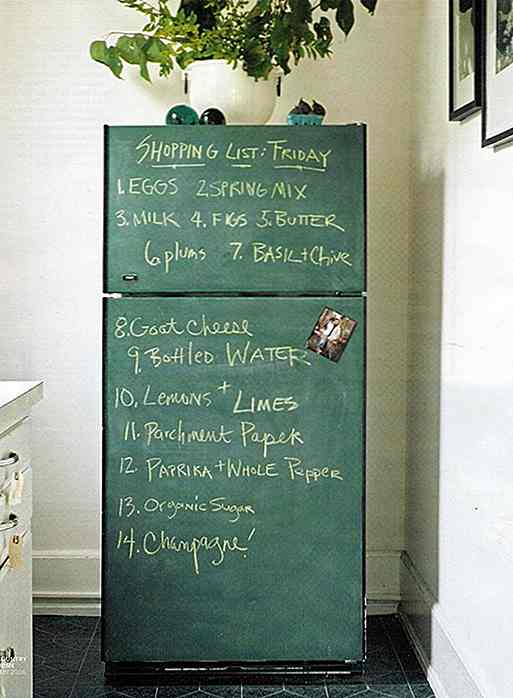 SHOPPING LIST: FRIDAY
1. EGGS 2. SPRING MIX
3. MILK 4. FIGS 5. BUTTER
6. plums 7. BASIL + CHIVE
8. Goat cheese
9. Bottled WATER
10. Lemons + LIMES
11. Parchment Paper
12. PAPRIKA + WHOLE Pepper
13. Organic Sugar
14. Champagne!